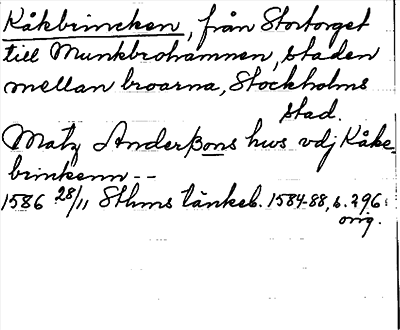 Kåkbrincken, från Stortorget
till Munkbrohamnen, staden
mellan broarna, Stockholms
stad.
Matz Anderßons hws vdj Kåke-
brinkenn --
1586 28/11 Sthms tänkeb. 1584-88, s. 296
orig.